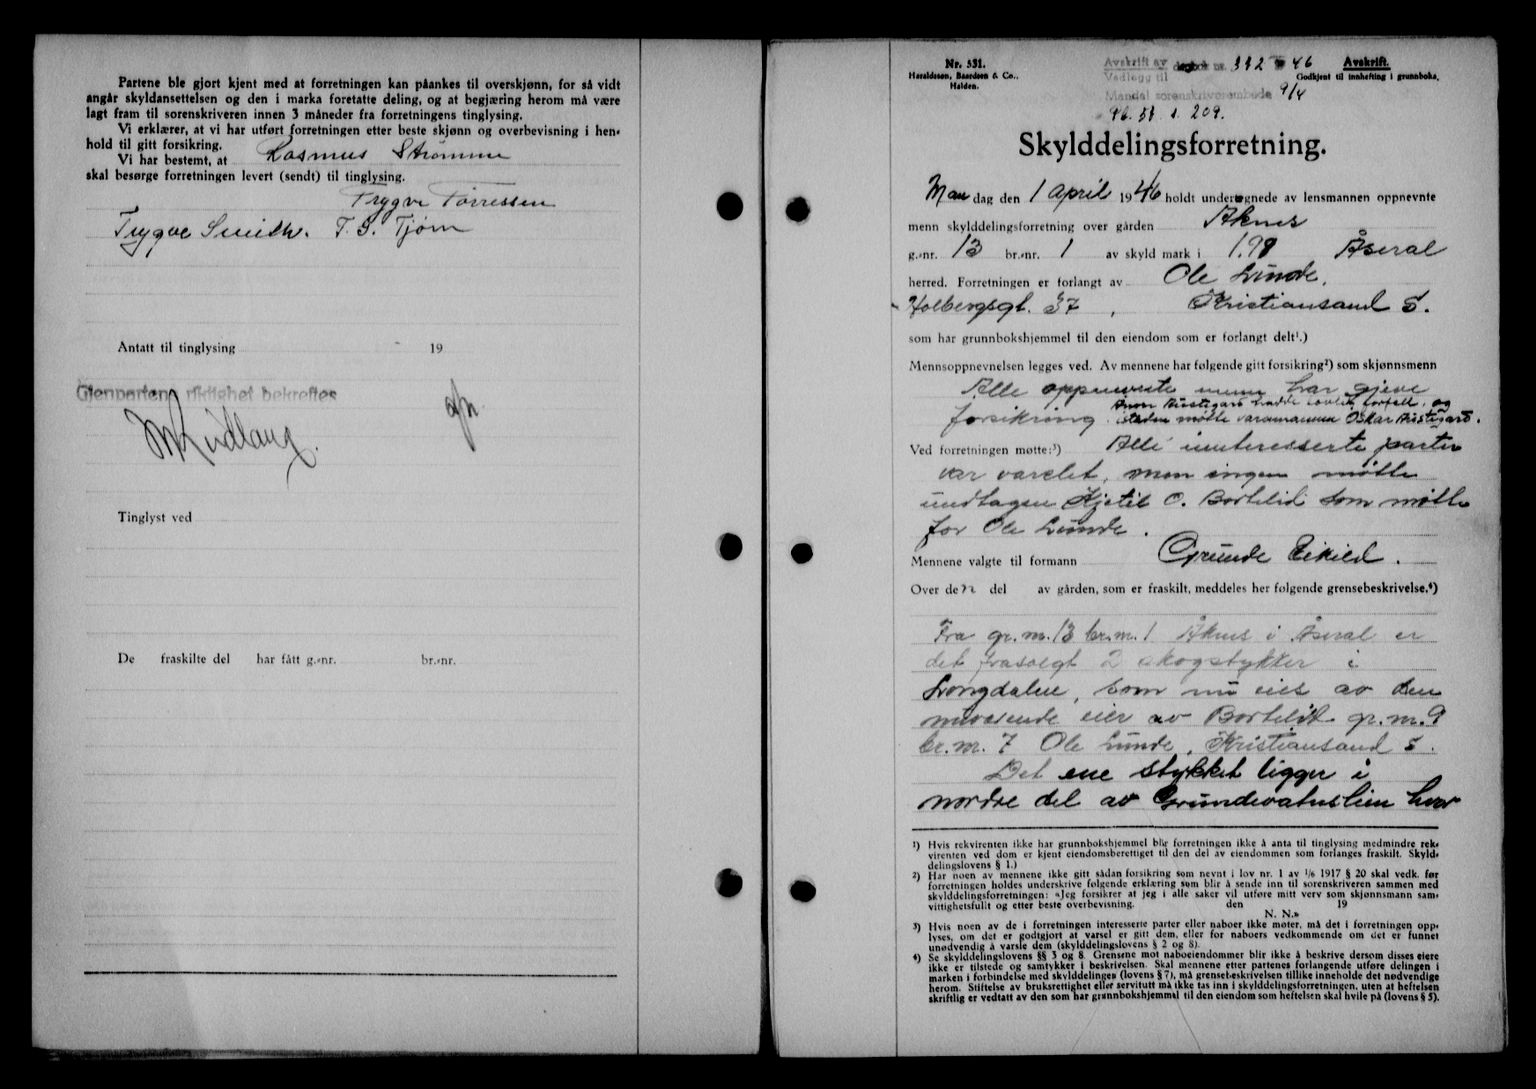 Partene ble gjort kjent med at forretningen kan påankes til overskjønn, for så vidt
angår skyldansettelsen og den i marka foretatte deling, og at begjæring herom må være
lagt fram til sorenskriveren innen 3 måneder fra forretningens tinglysing.
Vi erklærer, at vi har utført forretningen etter beste skjønn og overbevisning i hen-
hold til gitt forsikring.
Vi har bestemt, at Rasmus Strømme
skal besørge forretningen levert (sendt) til tinglysing.
Trygve Torressen
Trygve Smith. T. S. Tjøm
Antatt til tinglysing 19
Gjenpartens riktighet bekreftes
Tinglyst ved
De fraskilte del har fått g.-nr. br.-nr.
Nr. 531.
Haraldssen, Baardsen & Co.,
Halden.
Avskrift av dagbok nr. 332 46
Vedlegg til
Mandal sorenskriverembede 9/4
Avskrift.
Godkjent til innhefting i grunnboka.
s. 209.
Skylddelingsforretning.
Man dag den 1 april 1946 holdt undertegnede av lensmannen oppnevnte
menn skylddelingsforretning over gården Åknes
g.-nr. 13 br.-nr. 1 av skyld mark i 1.98 Åseral
herred. Forretningen er forlangt av Ole Lunde,
Holbergsgt. 37, Kristiansand S.
som har grunnbokshjemmel til den eiendom som er forlangt delt¹.)
Mennsoppnevnelsen legges ved. Av mennene har følgende gitt forsikring²) som skjønnsmenn
Alle oppnevnte menn har gjeve
forsikring. hadde lovlig forfall, og
isteden møtte varamannen Oskar
Ved forretningen møtte:³) Alle interesserte parter
var varslet, men ingen møtte
undtagen Kjetil O. Bortelid som møtte
for Ole Lunde.
Mennene valgte til formann Grunde Eikild.
Over den del av gården, som er fraskilt, meddeles her følgende grensebeskrivelse.⁴)
Fra gr.nr. 13 br.nr. 1 Åknes i Åseral er
det frasolgt 2 skogstykker i
Longdalen, som nu eies av den
nuværende eier av Bortelid gr.nr. 9
br.nr. 7 Ole Lunde, Kristiansand S.
Det ene stykket ligger i
nordre del av Grundevatnslien hvor
¹) Hvis rekvirenten ikke har grunnbokshjemmel blir forretningen ikke å anta til tinglysing medmindre rek-
virenten ved dom er kjent eiendomsberettiget til den del av eiendommen som forlanges fraskilt. Skyld-
delingslovens § 1.)
²) Har noen av mennene ikke gitt sådan forsikring som nevnt i lov nr. 1 av 1/6 1917 § 20 skal vedk. før
forretningen holdes underskrive følgende erklæring som blir å sende inn til sorenskriveren sammen med
skylddelingsforretningen: «Jeg forsikrer at jeg i alle saker vil utføre mitt verv som skjønnsmann sam-
vittighetsfullt og etter beste overbevisning. den 19
N. N.»
³) Hvis noen av de i forretningen interesserte parter eller naboer ikke møter, må det i forretningen opp-
lyses, om det er godtgjort at varsel er gitt dem, eller for naboers vedkommende om det er funnet
unødvendig å varsle dem (skylddelingslovens § 2 og 8).
⁴) Se skylddelingslovens §§ 3 og 8. Grensene mot naboeiendommer blir ikke å beskrive dersom disses eiere
ikke er tilstede og samtykker i beskrivelsen. Skal mennene etter partenes forlangende utføre delingen i
marken i forbindelse med skylddelingen (lovens § 7), må grensebeskrivelsen tillike inneholde det nødvendige
herom. Stiftelse av bruksrettighet eller servitutt må ikke tas inn i skylddelingsforretningen, uten at heftelsen
skriftlig er vedtatt av den som har grunnbokshjemmel til den eiendom som heftelsen skal hvile på (lovens § 5).